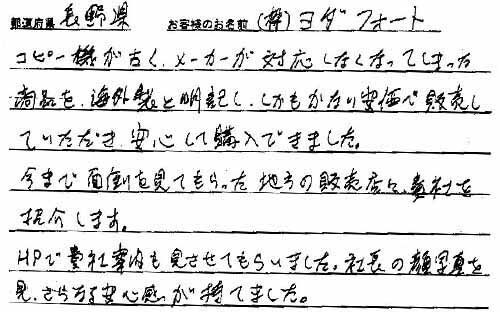 都道府県 長野県 お客様のお名前 (株)ヨダフォート
コピー機が古く、メーカーが対応しなくなってしまった
商品を、海外製と明記し、しかもかなり安価で販売し
ていただき、安心して購入できました。
今まで面倒を見てもらった地方の販売店に、貴社を
紹介します。
HPで貴社案内も見させてもらいました。社長の顔写真を
見、さらなる安心感が持てました。